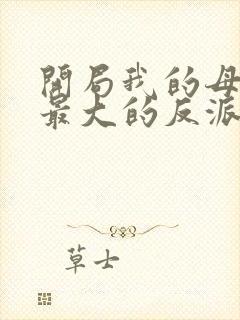 開局我的母
最大的反派
草士